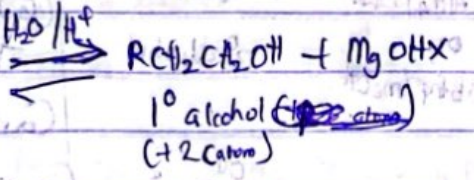 H₂O/H⁺
⇌ RCH₂CH₂OH + MgOHX
1° alcohol
(+2 C atom)